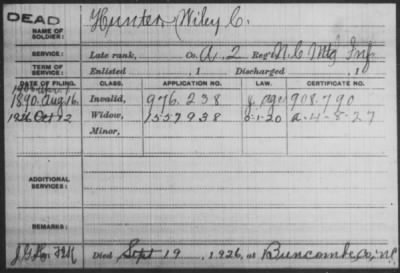 DEAD
NAME OF SOLDIER:
Hunter, Wiley C.
SERVICE:
Late rank, Co. A. 2 Reg't N. C. Mtd Inf
TERM OF SERVICE:
Enlisted , 1 Discharged , 1
DATE OF FILING. CLASS. APPLICATION NO. LAW. CERTIFICATE NO.
1890. Aug 16. Invalid, 976.238 908.790
1926 Oct 2 Widow, 1557938 5-1-20 a-4-8-27
Minor,
ADDITIONAL SERVICES:
REMARKS:
Died Sept 19, 1926, at Buncombe Co., N.C.